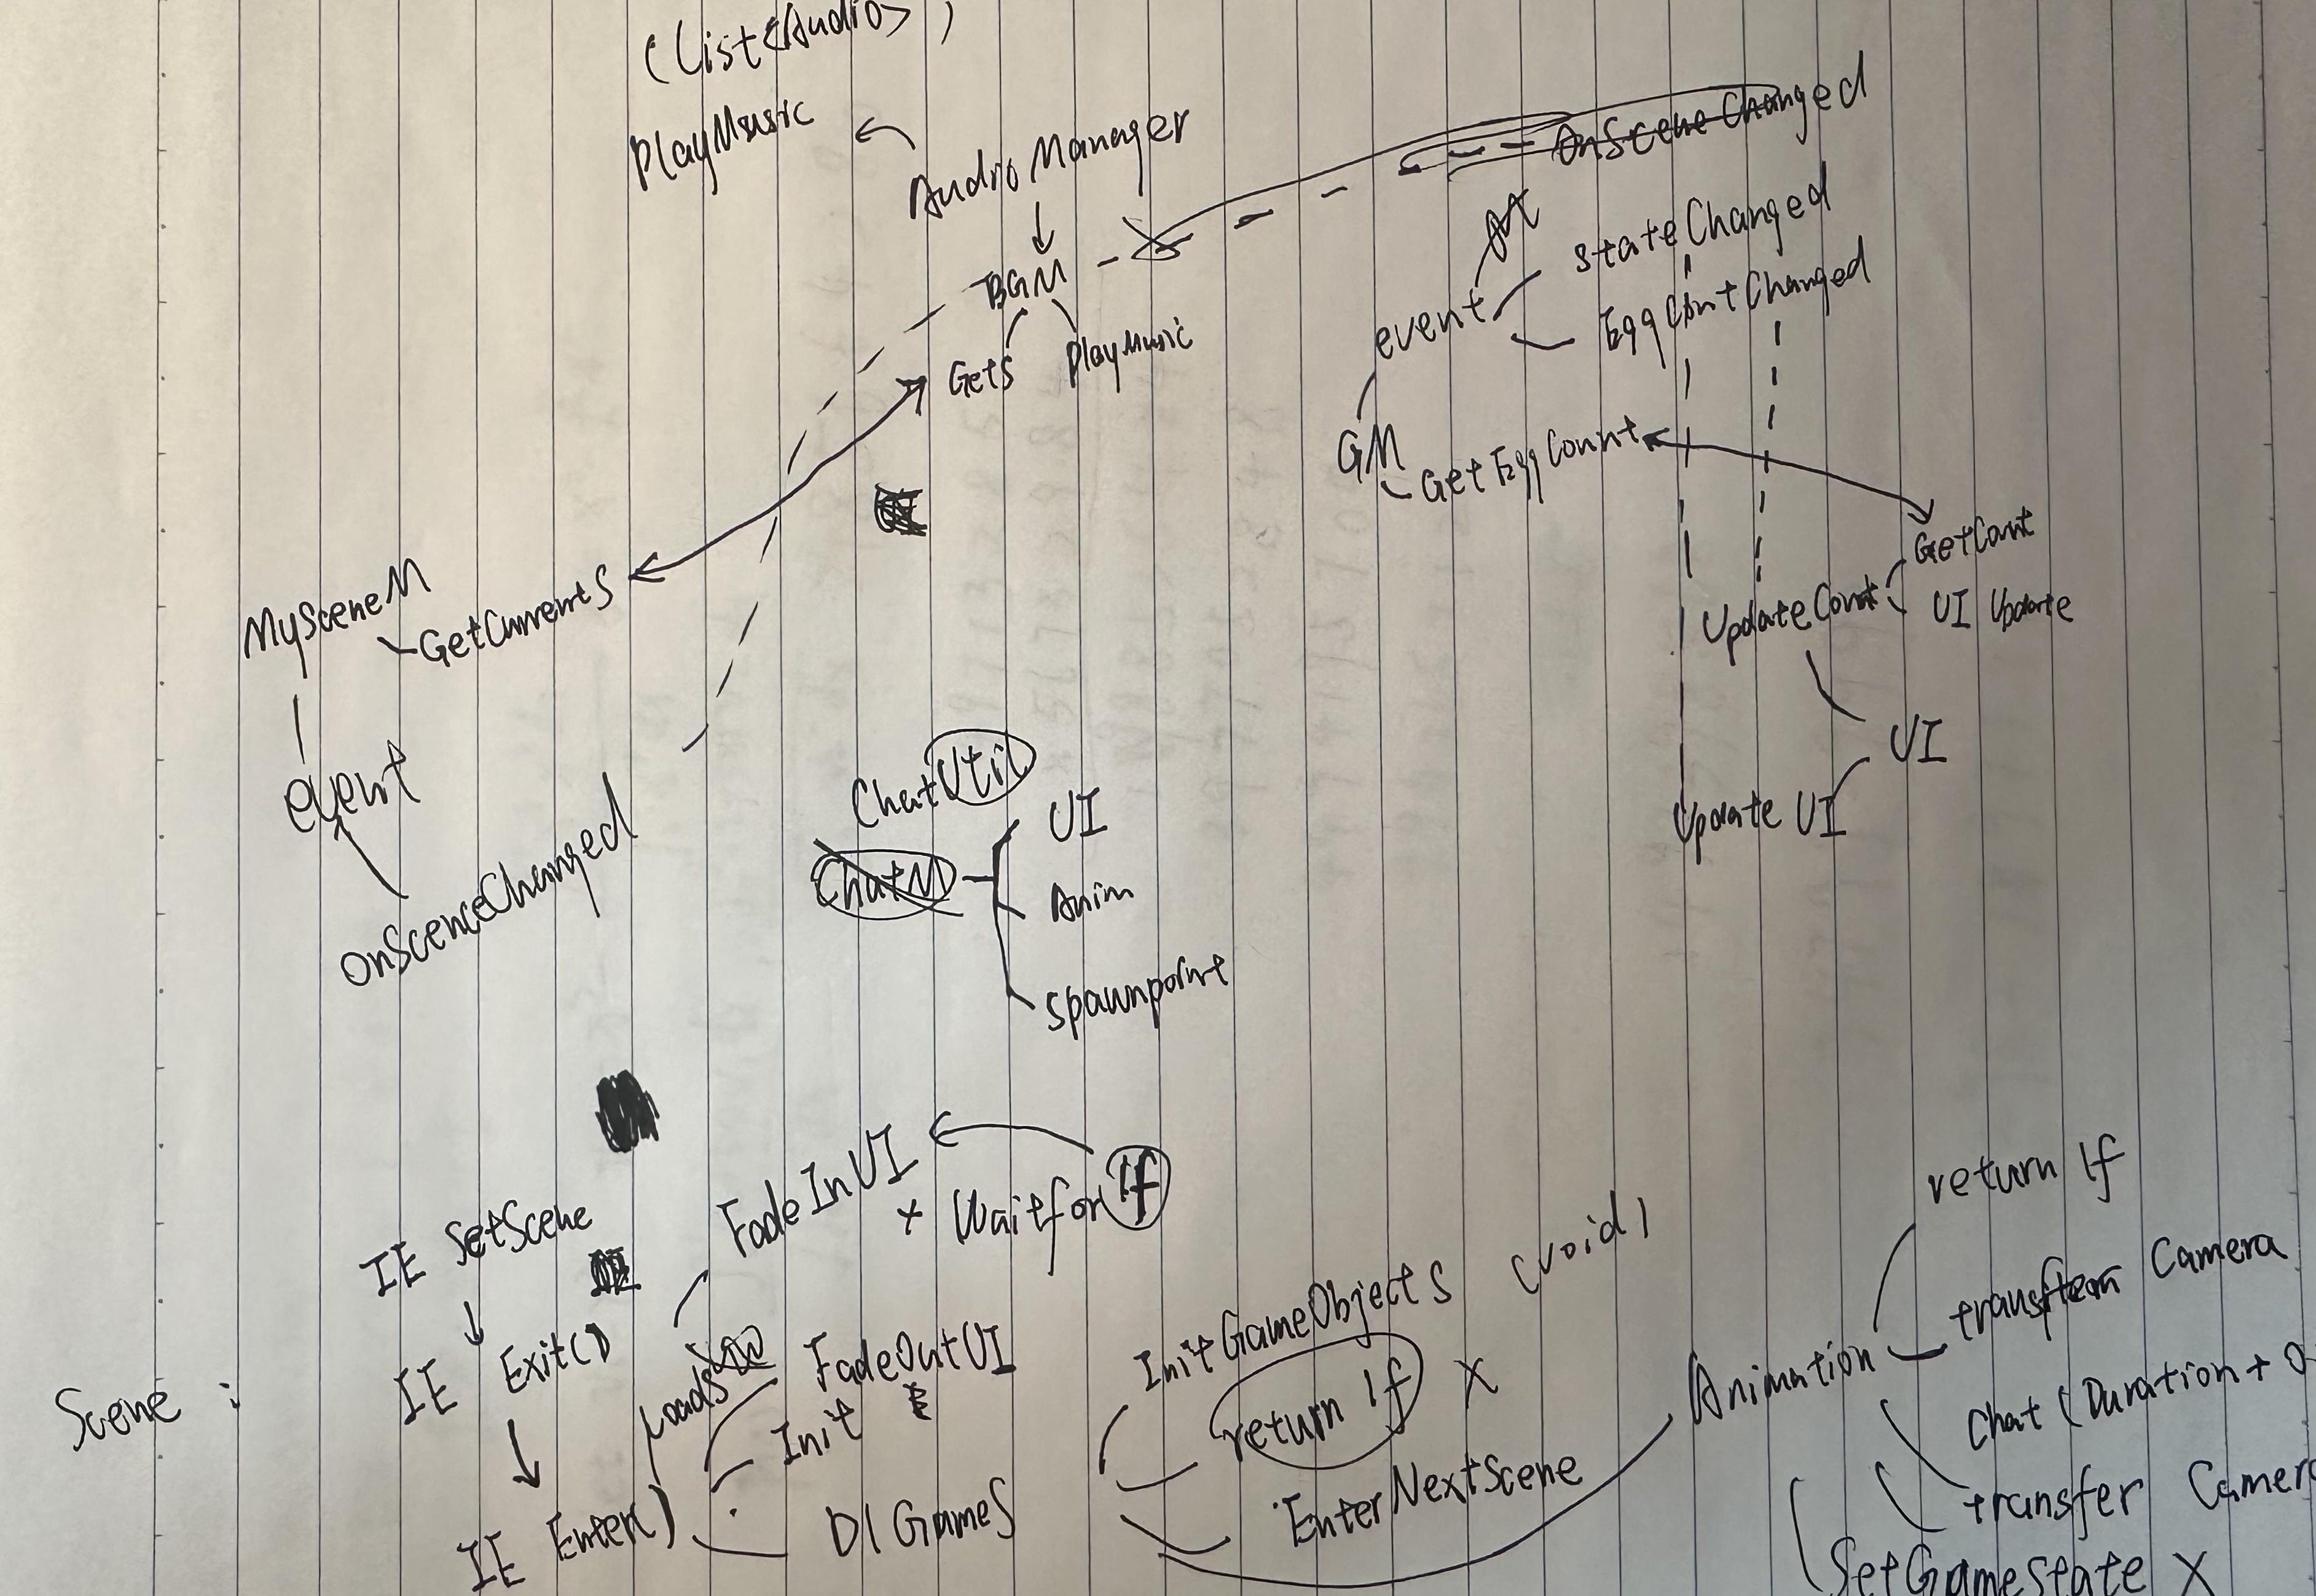 (List<Audio>)
PlayMusic
Audio Manager
OnSceneChanged
BGM
GetS
PlayMusic
event
stateChanged
EggContChanged
GM
GetEggCount
GetCont
UpdateCont
UI Update
UI
Update UI
MySceneM
GetCurrentS
event
OnSceneChanged
ChatUtil
ChatM
UI
Anim
spawnpoint
FadeInUI
+ Waitfor 1f
IE SetScene
Scene :
IE Exit()
IE Enter()
LoadS
FadeOutUI
Init
D1 GameS
InitGameObjects (void)
return 1f X
EnterNextScene
Animation
return 1f
Camera
Chat (Duration + 0
transfer Camera
SetGameState X